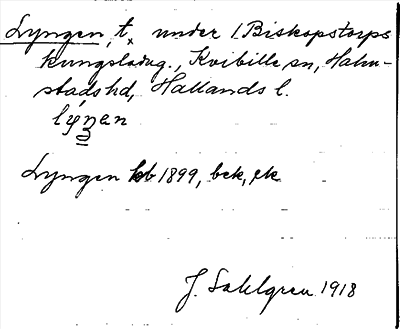 Lyngen, t. under 1 Biskopstorps
kungsladug., Kvibille sn, Halm-
stads hd, Hallands l.
lyŋen
Lyngen kb 1899, bek, ek
J. Sahlgren 1918